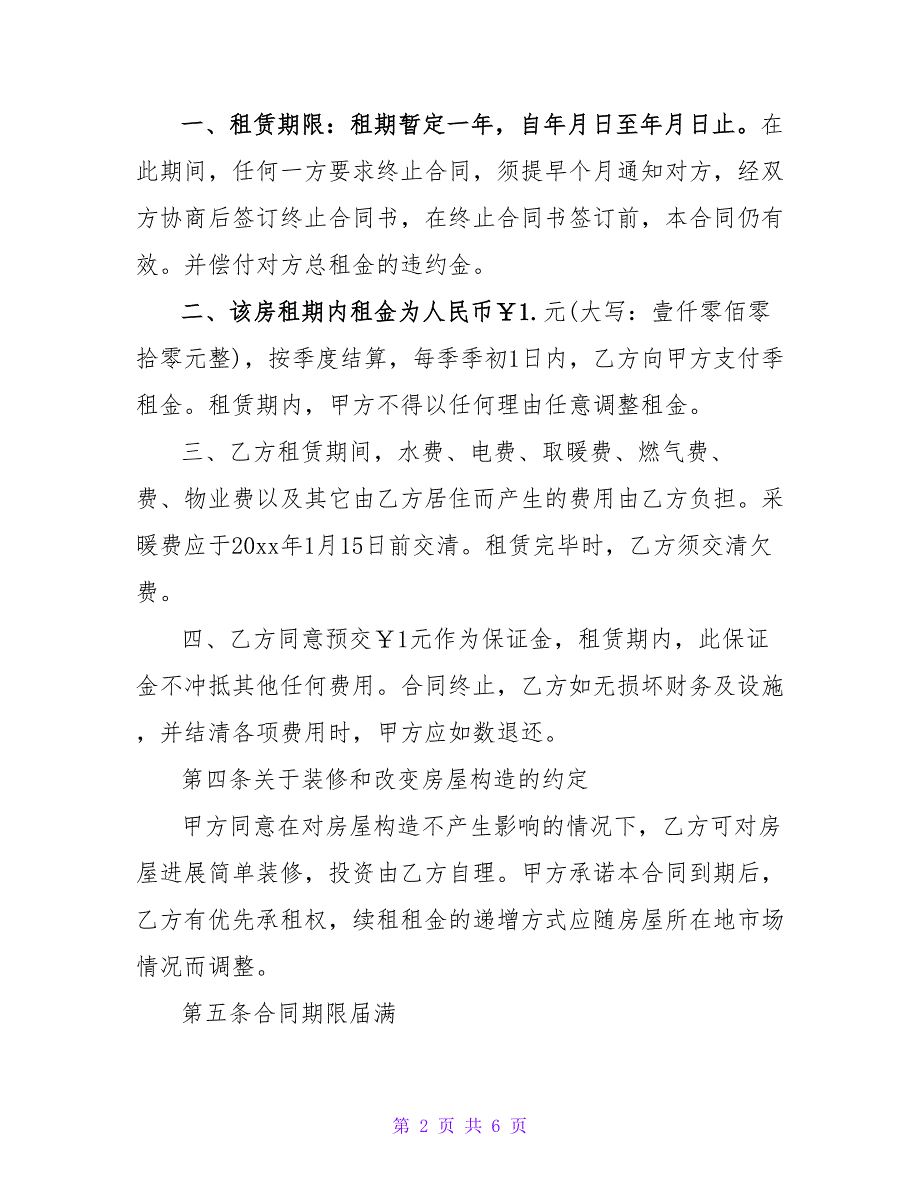 一、租赁期限：租期暂定一年，自年月日至年月日止。在
此期间，任何一方要求终止合同，须提早个月通知对方，经双
方协商后签订终止合同书，在终止合同书签订前，本合同仍有
效。并偿付对方总租金的违约金。
二、该房租期内租金为人民币￥1.元(大写：壹仟零佰零
拾零元整)，按季度结算，每季季初1日内，乙方向甲方支付季
租金。租赁期内，甲方不得以任何理由任意调整租金。
三、乙方租赁期间，水费、电费、取暖费、燃气费、
费、物业费以及其它由乙方居住而产生的费用由乙方负担。采
暖费应于20xx年1月15日前交清。租赁完毕时，乙方须交清欠
费。
四、乙方同意预交￥1元作为保证金，租赁期内，此保证
金不冲抵其他任何费用。合同终止，乙方如无损坏财务及设施
，并结清各项费用时，甲方应如数退还。
第四条关于装修和改变房屋构造的约定
甲方同意在对房屋构造不产生影响的情况下，乙方可对房
屋进展简单装修，投资由乙方自理。甲方承诺本合同到期后，
乙方有优先承租权，续租租金的递增方式应随房屋所在地市场
情况而调整。
第五条合同期限届满
第 2 页 共 6 页